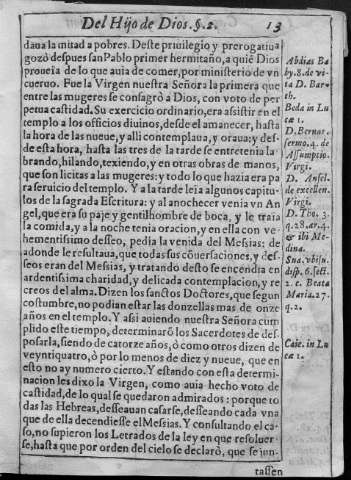 Del Hijo de Dios. §. 2. 13
daua la mitad a pobres. Deste priuilegio y prerogatiua
gozò despues san Pablo primer hermitaño, a quiẽ Dios
proueía de lo que auia de comer, por ministerio de vn
cueruo. Fue la Virgen nuestra Señora la primera que
entre las mugeres se consagrò a Dios, con voto de per
petua castidad. Su exercicio ordinario, era assistir en el
templo a los officios diuinos, desde el amanecer, hasta
la hora de las nueue, y alli contemplaua, y oraua: y des-
de esta hora, hasta las tres de la tarde se entretenia la-
brando, hilando, texiendo, y en otras obras de manos,
que son licitas a las mugeres: y todo lo que hazia era pa
ra seruicio del templo. Y a la tarde leia algunos capitu-
los de la sagrada Escritura: y al anochecer venia vn An
gel, que era su paje y gentilhombre de boca, y le traia
la comida, y a la noche tenia oracion, y en ella con ve-
hementissimo desseo, pedia la venida del Messias: de
adonde le resultaua, que todas sus cõuersaciones, y des-
seos eran del Messias, y tratando desto se encendia en
ardentissima charidad, y delicada contemplacion, y re
creos del alma. Dizen los sanctos Doctores, que segun
costumbre, no podian estar las donzellas mas de onze
años en el templo. Y assi auiendo nuestra Señora cum
plido este tiempo, determinarõ los Sacerdotes de des-
posarla, siendo de catorze años, ò como otros dizen de
veyntiquatro, ò por lo menos de diez y nueue, que en
esto no ay numero cierto. Y estando con esta determi-
nacion les dixo la Virgen, como auia hecho voto de
castidad, de lo qual se quedaron admirados: porque to
das las Hebreas, desseauan casarse, desseando cada vna
que de ella decendiesse el Messias. Y consultando el ca-
so, no supieron los Letrados de la ley en que resoluer-
se, hasta que por orden del cielo se declarò, que se jun-
tassen
Abdias Ba
by. 8. de vi-
ta D. Bar-
th.
Beda in Lu
ca 1.
D. Bernar.
sermo. 4. de
Assumptio.
Virgi.
D. Ansel.
de excellen.
Virgi.
D. Tho. 3.
q. 28. ar. 4.
& ibi Me
dina.
Sua. vbi su.
disp. 6. sect.
2. e. Beata
Maria. 27.
q. 2.
Caie. in Lu
ca 1.